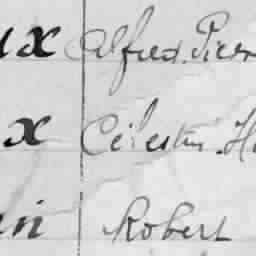 ux Alfred. Pierr
x Célestin. H
in Robert